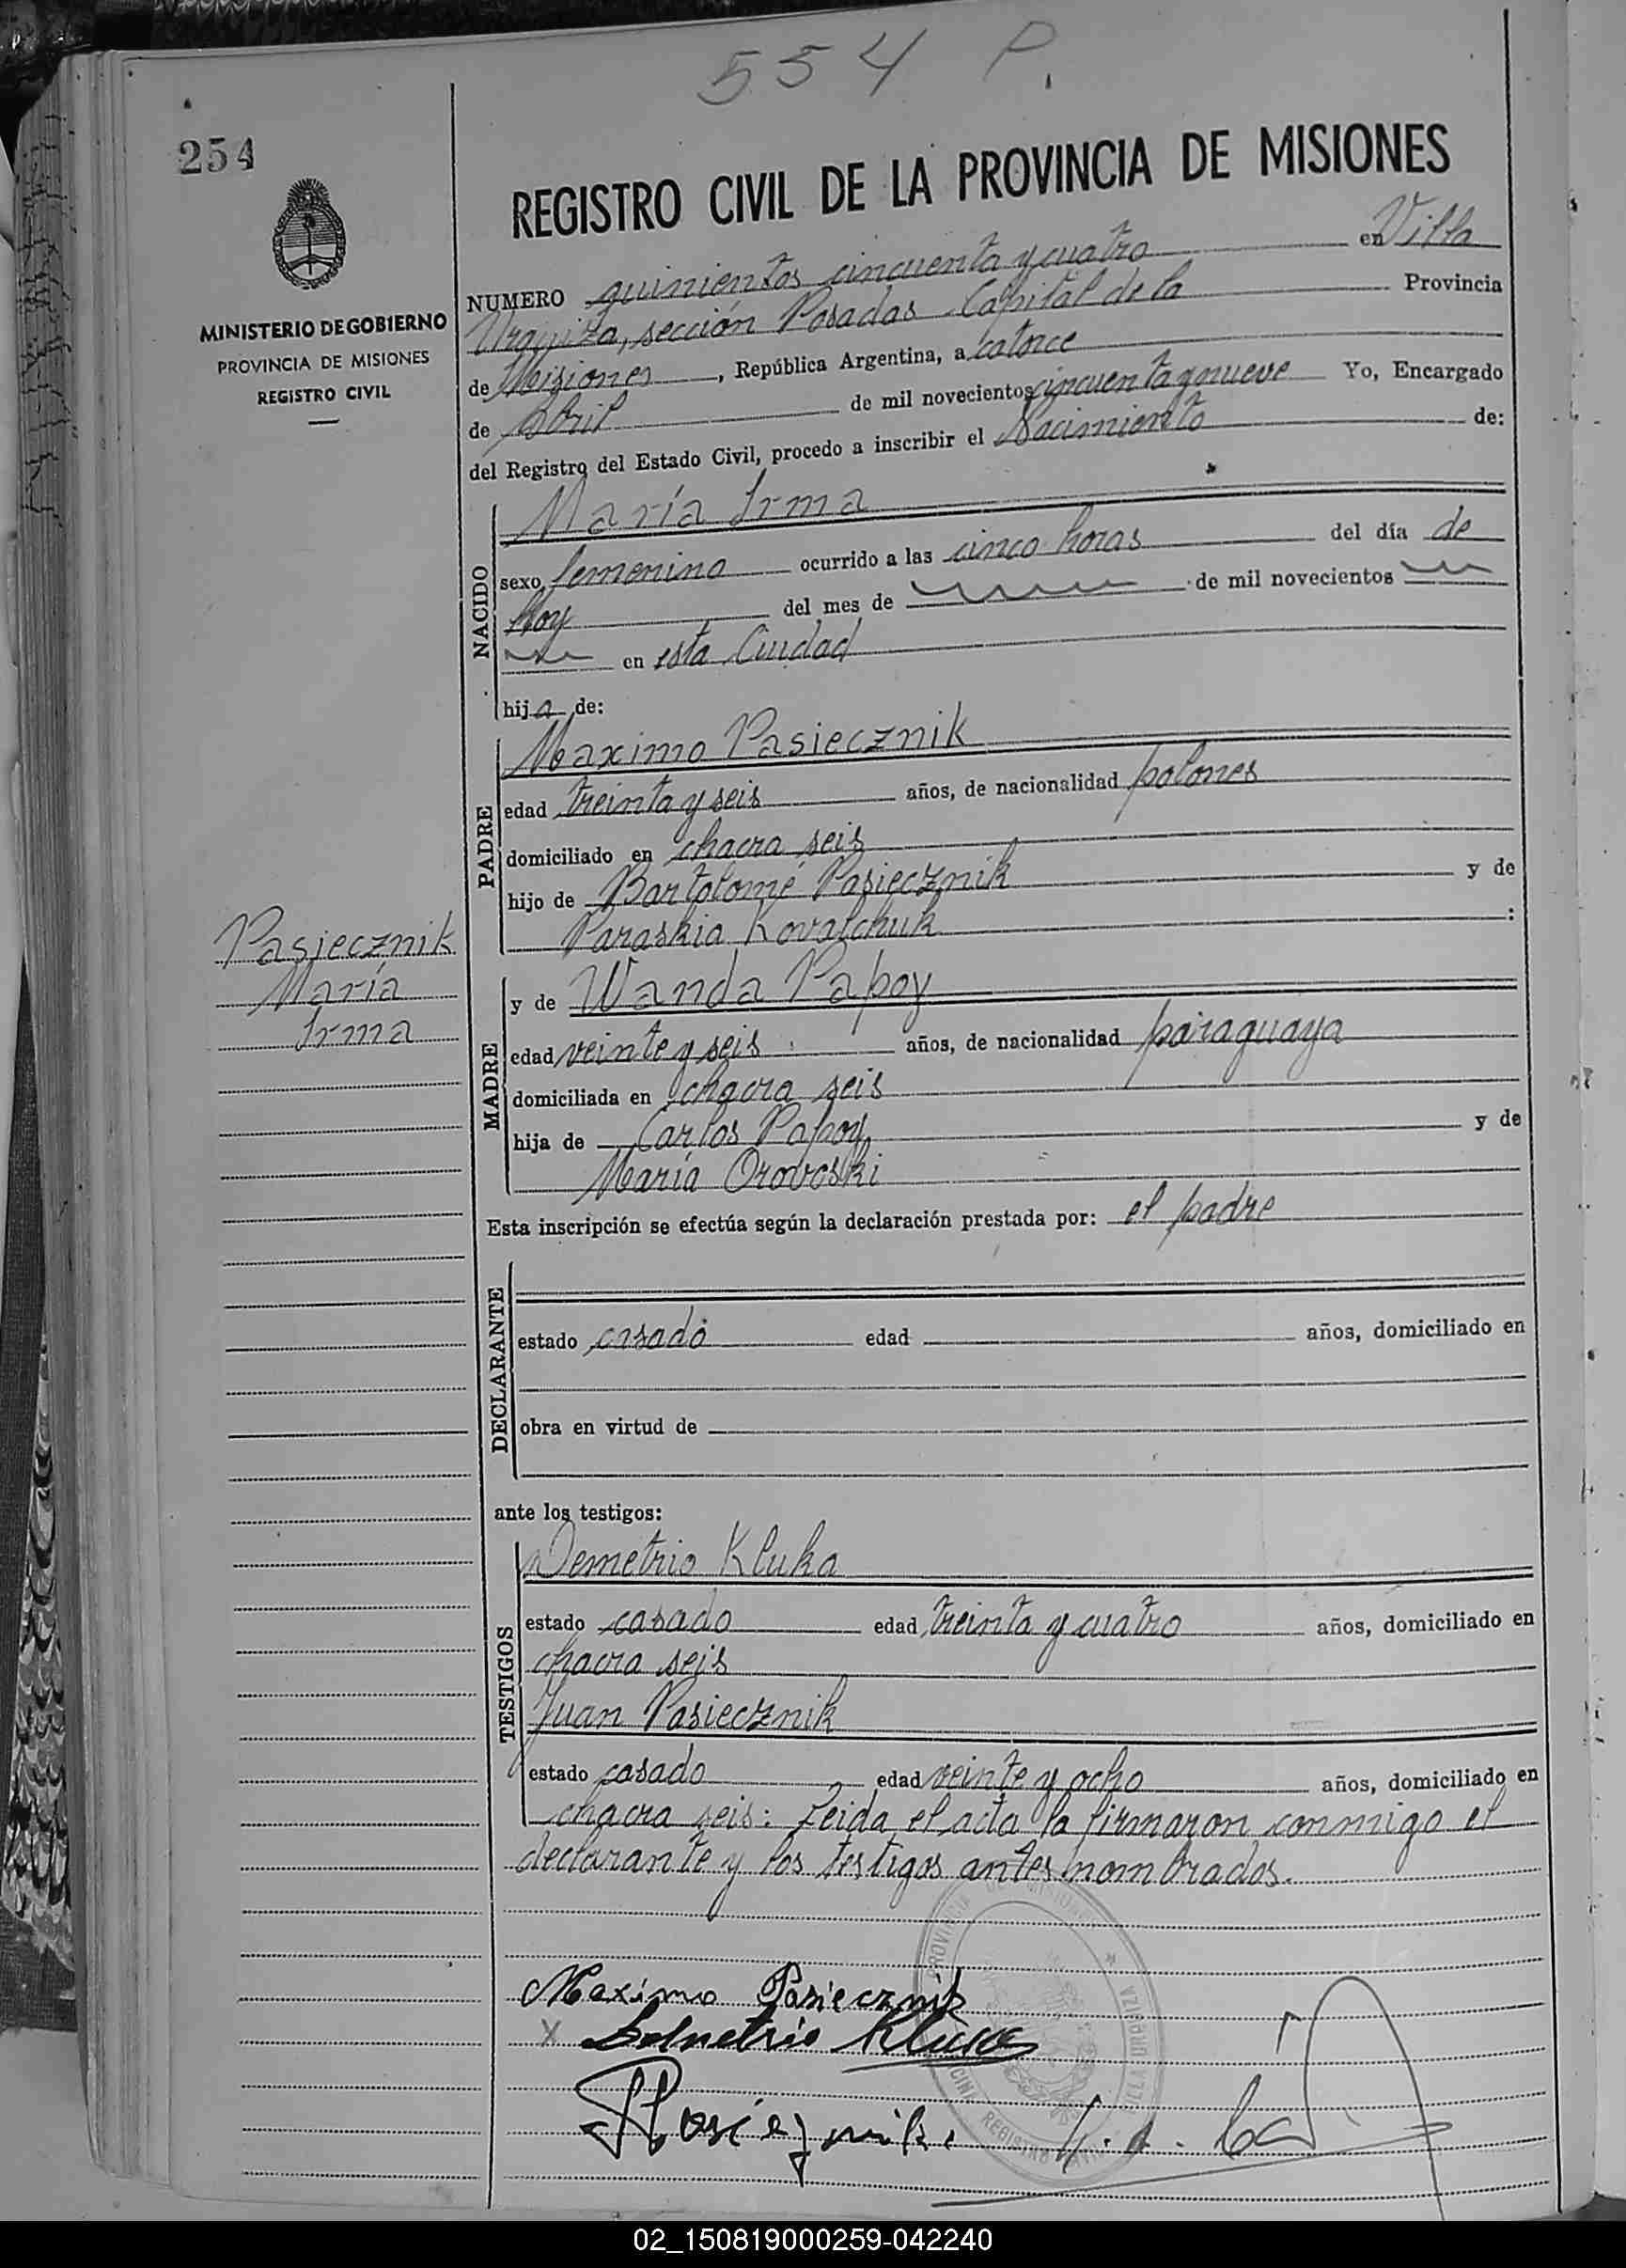 554 P.
254
MINISTERIO DE GOBIERNO
PROVINCIA DE MISIONES
REGISTRO CIVIL
REGISTRO CIVIL DE LA PROVINCIA DE MISIONES
NUMERO quinientos cincuenta y cuatro en Villa
Urquiza, sección Posadas Capital de la Provincia
de Misiones, República Argentina, a catorce
de Abril de mil novecientos cincuenta y nueve Yo, Encargado
del Registro del Estado Civil, procedo a inscribir el Nacimiento de:
NACIDO
María Irma
sexo femenino ocurrido a las cinco horas del día de
Hoy del mes de de mil novecientos
en esta Ciudad
hija de:
PADRE
Maximo Pasiecznik
edad treinta y seis años, de nacionalidad polones
domiciliado en chacra seis
hijo de Bartolomé Pasiecznik y de
Paraskia Kovalchuk :
Pasiecznik
María
Irma
MADRE
y de Wanda Papoy
edad veinte y seis años, de nacionalidad paraguaya
domiciliada en chacra seis
hija de Carlos Papoy y de
María Orovoski
Esta inscripción se efectúa según la declaración prestada por: el padre
DECLARANTE
estado casado edad años, domiciliado en
obra en virtud de
ante los testigos:
TESTIGOS
Demetrio Kluka
estado casado edad treinta y cuatro años, domiciliado en
chacra seis
Juan Pasiecznik
estado casado edad veinte y ocho años, domiciliado en
chacra seis: Leida el acta la firmaron conmigo el
declarante y los testigos antes nombrados.
Maximo Pasiecznik
X Demetrio Kluka
PROVINCIA DE MISIONES
VILLA URQUIZA
REGISTRO
02_150819000259-042240